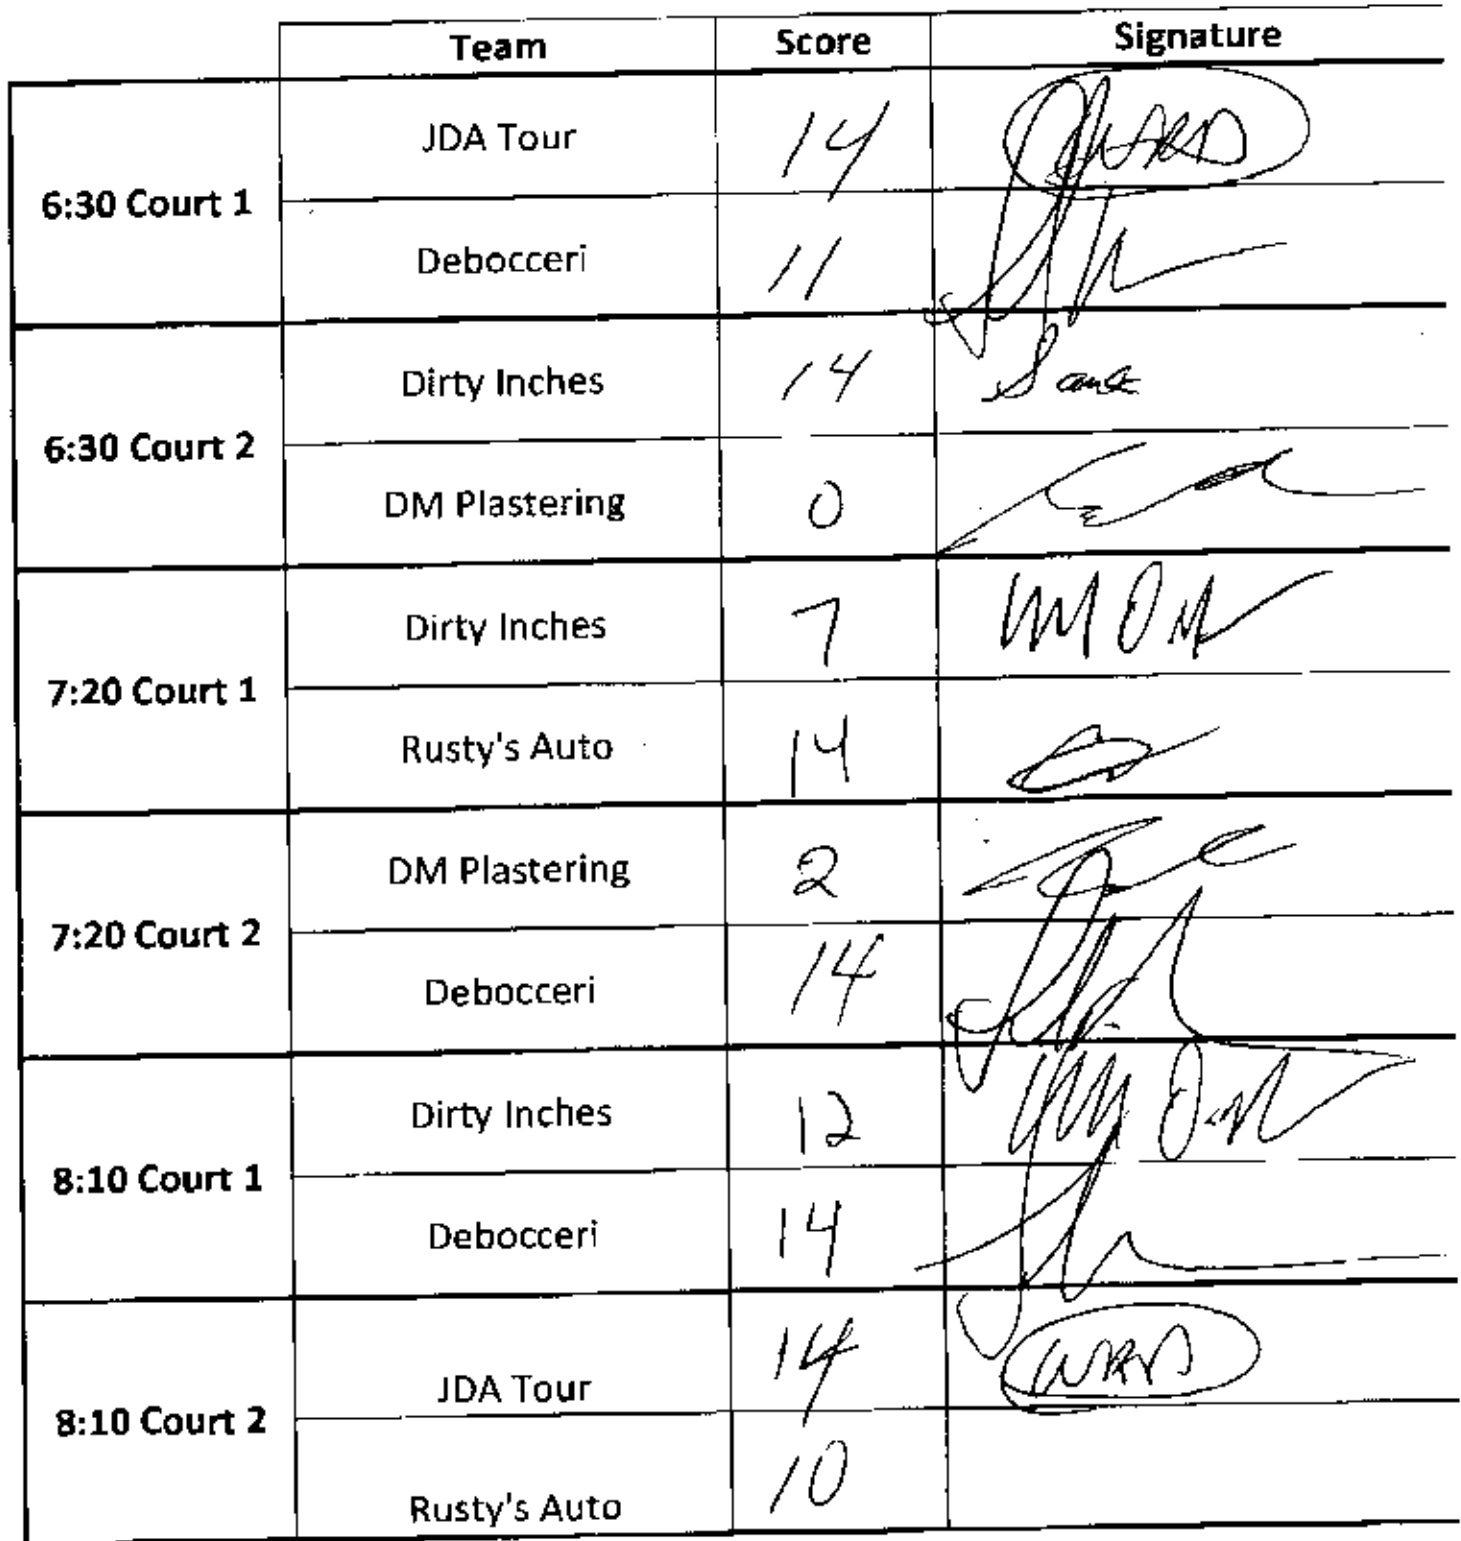 Team Score Signature
6:30 Court 1
JDA Tour 14 WARD
Debocceri 11
6:30 Court 2
Dirty Inches 14
DM Plastering 0
7:20 Court 1
Dirty Inches 7
Rusty's Auto 14
7:20 Court 2
DM Plastering 2
Debocceri 14
8:10 Court 1
Dirty Inches 12
Debocceri 14
8:10 Court 2
JDA Tour 14 WARD
Rusty's Auto 10